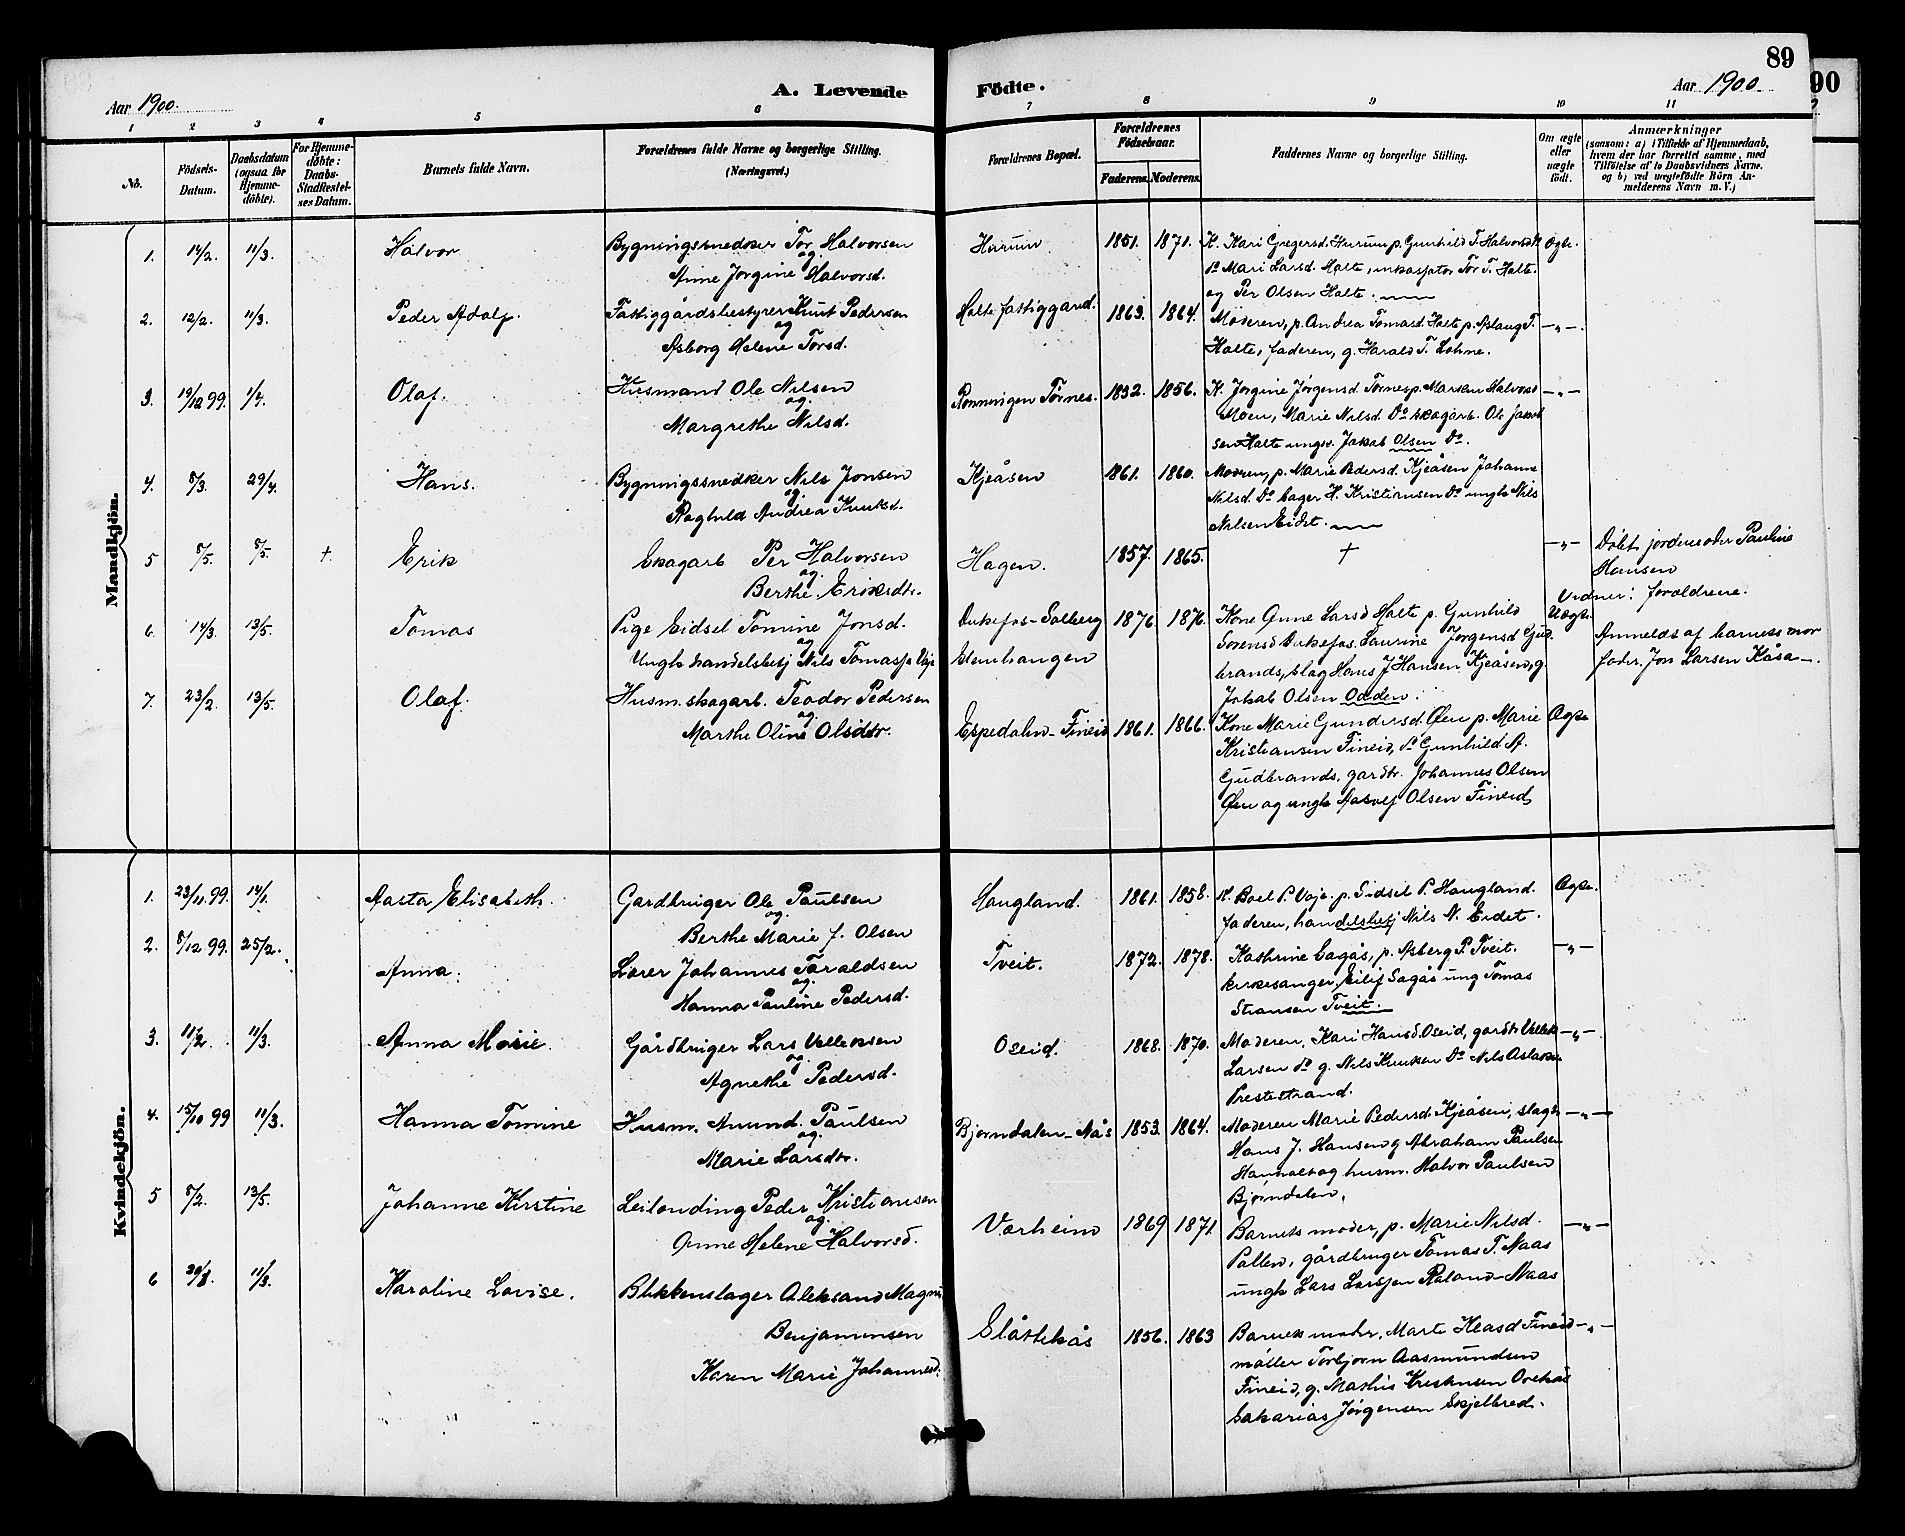 89
90
Aar 1900.
A. Levende Födte.
Aar 1900.
1 2 3 4 5 6 7 8 9 10 11
No.
Födsels-Datum.
Daabsdatum (ogsaa for Hjemmedöbte).
For Hjemmedöbte: Daabs-Stadfestelses Datum.
Barnets fulde Navn.
Forældrenes fulde Navne og borgerlige Stilling.
(Næringsvei.)
Forældrenes Bopæl.
Forældrenes Födselsaar.
Faderens. Moderens.
Faddernes Navne og borgerlige Stilling.
Om ægte eller uægte födt.
Anmærkninger
(saasom: a) i Tilfælde af Hjemmedaab,
hvem der har forrettet samme, med
Tilföielse af to Daabsvidners Navne,
og b) ved uægtefödte Börn Anmelderens Navn m. V.)
Mandkjön.
1. 14/2. 11/3. Halvor Bygningssnedker Tor Halvorsen Harum 1851. 1871. K. Kari Gregersd. Hurum p. Gunhild T. Halvorsd. Ægte.
og
Anne Jørgine Halvorsd. Do Mari Larsd. Halte, inkassator Tor T. Halte.
og Per Olsen Halte.
2. 12/2. 11/3. Peder Adolf. Fattiggårdsbestyrer Knut Pedersen Halte fattiggaard. 1863. 1864. Moderen, p. Andrea Tomasd. Halte p. Aslaug T. —„—.
og
Asborg Helene Torsd. Halte, faderen, g. Harald T. Lohne.
3. 19/12 99. 1/4. Olaf. Husmand Ole Nilsen Rønningen Tørnes. 1832. 1856. K. Jørgine Jørgensd. Tørnes p. Marken Halvorsd —„—
og
Margrethe Nilsd. Moen, Marie Nilsd. Do skogarb. Ole Jakobsen Halte ungk. Jakob Olsen Do.
4. 8/3. 29/4. Hans. Bygningssnedker Nils Jonsen Kjeåsen 1861. 1860. Moderen, p. Marie Pedersd. Kjeåsen Johanne
og
Raghild Andrea Knutsd. Nilsd. Do bager H. Kristiansen Do ungk Nils
Nilsen Eidet.
5 8/5. 8/5. +. Erik Skogarb Per Halvorsen Hagen. 1857. 1865. + —„— Døbt jordemoder Pauline
og
Berthe Eriksdtr. Hansen
Vidner: forældrene.
6. 14/3. 13/5. Tomas Pige Sidsel Tomine Jonsd. Dukefos-Solberg 1876. 1876. Kone Anne Larsd Halte p. Gunhild Uægte.
og
Ungk handelsbetj Nils Tomassen Stenhaugen Sorensd Dukefos. Laurine Jørgensd Gud- Anmeldt af barnets mor
brands, slag Hans J Hansen Kjeåsen, g. fader. Jon Larsen Kåsa—.
Jokab Olsen Odden.
7. 23/2. 13/5. Olaf. Husm. skogarb. Teodor Pedersen Espedalen-Fineid 1861. 1866. Kone Marie Gundersd. Øen p. Marie Ægte
og
Marthe Oline Olsdtr. Kristiansen Fineid, Do Gunhild A.
Gudbrands, gardbr. Johannes Olsen
Øen og ungk Aasvel Olsen Fineid
Kvindekjön.
1. 23/11. 99. 14/1. Aasta Elisabeth. Gardbruger Ole Paulsen Haugland. 1861. 1858. K. Boel P. Voje. p. Sidsel P. Haugland. Ægte.
og
Berthe Marie f. Olsen faderen, handelsbetj Nils N. Eidet.
2. 8/12 99. 25/2. Anna. Lærer Johannes Taraldsen Tveit. 1872. 1878. Kathrine Sagås, p. Asberg P. Tveit. —„—
og
Hanna Pauline Pedersd. kirkesanger Eilif Sagås ung Tomas
Stiansen Tveit.
3. 11/2. 11/3. Anna Marie. Gårdbruger Lars Velleksen Oseid. 1868. 1870. Moderen, Kari Hansd. Oseid, gardbr Vellek —„—
og
Agnethe Pedersd. Larsen do g. Nils Knutsen Do Nils Aslaksen
Prestestrand.
4. 15/10 99 11/3. Hanna Tomine Husm. Amund. Paulsen Bjørndalen-Nås 1853. 1864. Moderen Marie Pedersd. Kjeåsen, slagt —„—
og
Marie Larsdtr. Hans J. Hansen g Abraham Paulsen
og husm. Halvor Paulsen
Bjørndalen.
5 8/2. 13/5. Johanne Kirstine Leilending Peder Kristiansen Varheim 1869 1871. Barnets moder, p. Marie Nilsd. —„—
og
Anne Helene Halvorsd. Pollen, gårdbruger Tomas T. Naas
ungk Lars Larssen Raland-Naas
6 11/3. Karoline Lovise. Blikkenslager Aleksand Magnus Slåttekås 1856. 1863 Barnets moder, Marte Kleasd Fineid —„—
Benjaminsen møller Torbjorn Aasmundsen
Karen Marie Johannesd. Fineid, g. Mathis Kristensen
Sakarias Jørgensen Skjelbred.